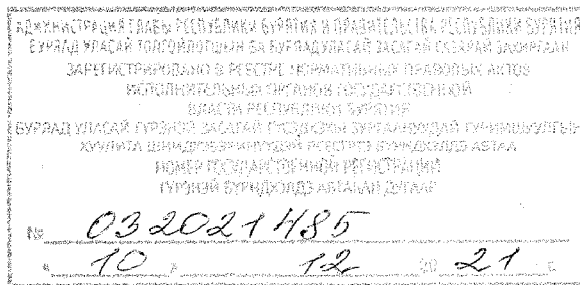 АДМИНИСТРАЦИЯ ГЛАВЫ РЕСПУБЛИКИ БУРЯТИЯ И ПРАВИТЕЛЬСТВА РЕСПУБЛИКИ БУРЯТИЯ
БУРЯАД УЛАСАЙ ТОЛГОЙЛОГШЫН БА БУРЯАД УЛАСАЙ ЗАСАГАЙ ГАЗАРАЙ ЗАХИРГААН
ЗАРЕГИСТРИРОВАНО В РЕЕСТРЕ НОРМАТИВНЫХ ПРАВОВЫХ АКТОВ
ИСПОЛНИТЕЛЬНЫХ ОРГАНОВ ГОСУДАРСТВЕННОЙ
ВЛАСТИ РЕСПУБЛИКИ БУРЯТИЯ
БУРЯАД УЛАСАЙ ГҮРЭНЭЙ ЗАСАГАЙ
НОМЕР ГОСУДАРСТВЕННОЙ РЕГИСТРАЦИИ
ГҮРЭНЭЙ БҮРИДХЭЛДЭ АБТАҺАН ДУГААР
№ 032021485
« 10 » 12 20 21 г.